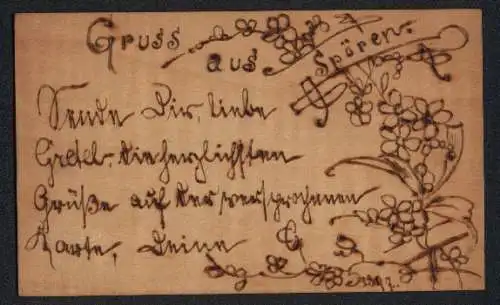 Gruss
aus
Spören.
Sende Dir, liebe
Gretel, die herzlichsten
Grüße auf der versprochenen
Karte, Deine